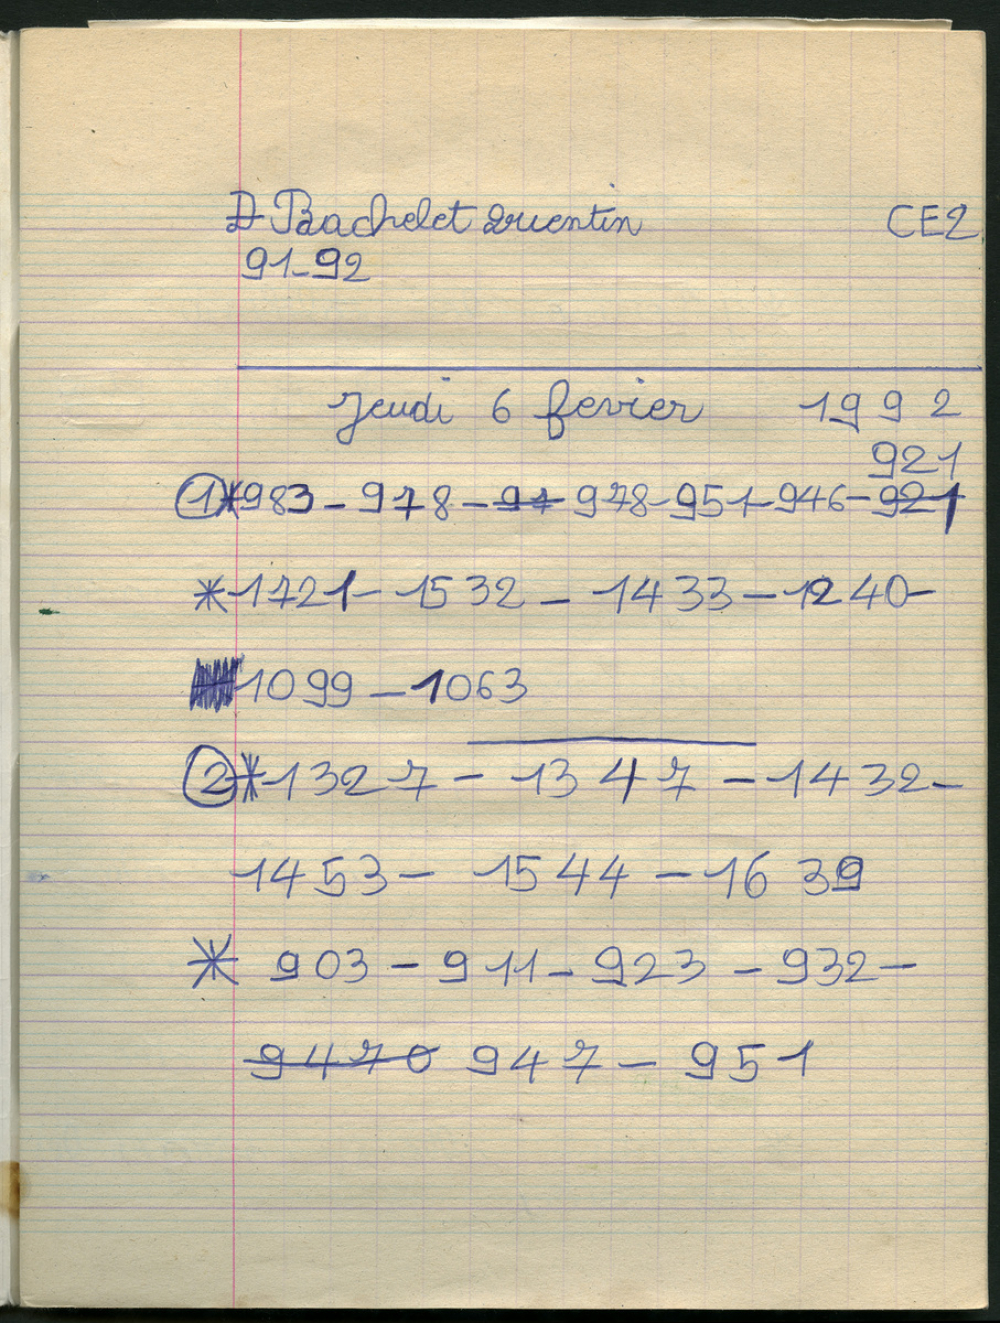 Bachelet Quentin CE2
91-92
Jeudi 6 fevier 1992
921
1 *983 - 978 - 97 978 - 951 - 946 - 921
*1721 - 1532 - 1433 - 1240 -
1099 - 1063
2 *1327 - 1347 - 1432 -
1453 - 1544 - 1639
* 903 - 911 - 923 - 932 -
9470 947 - 951